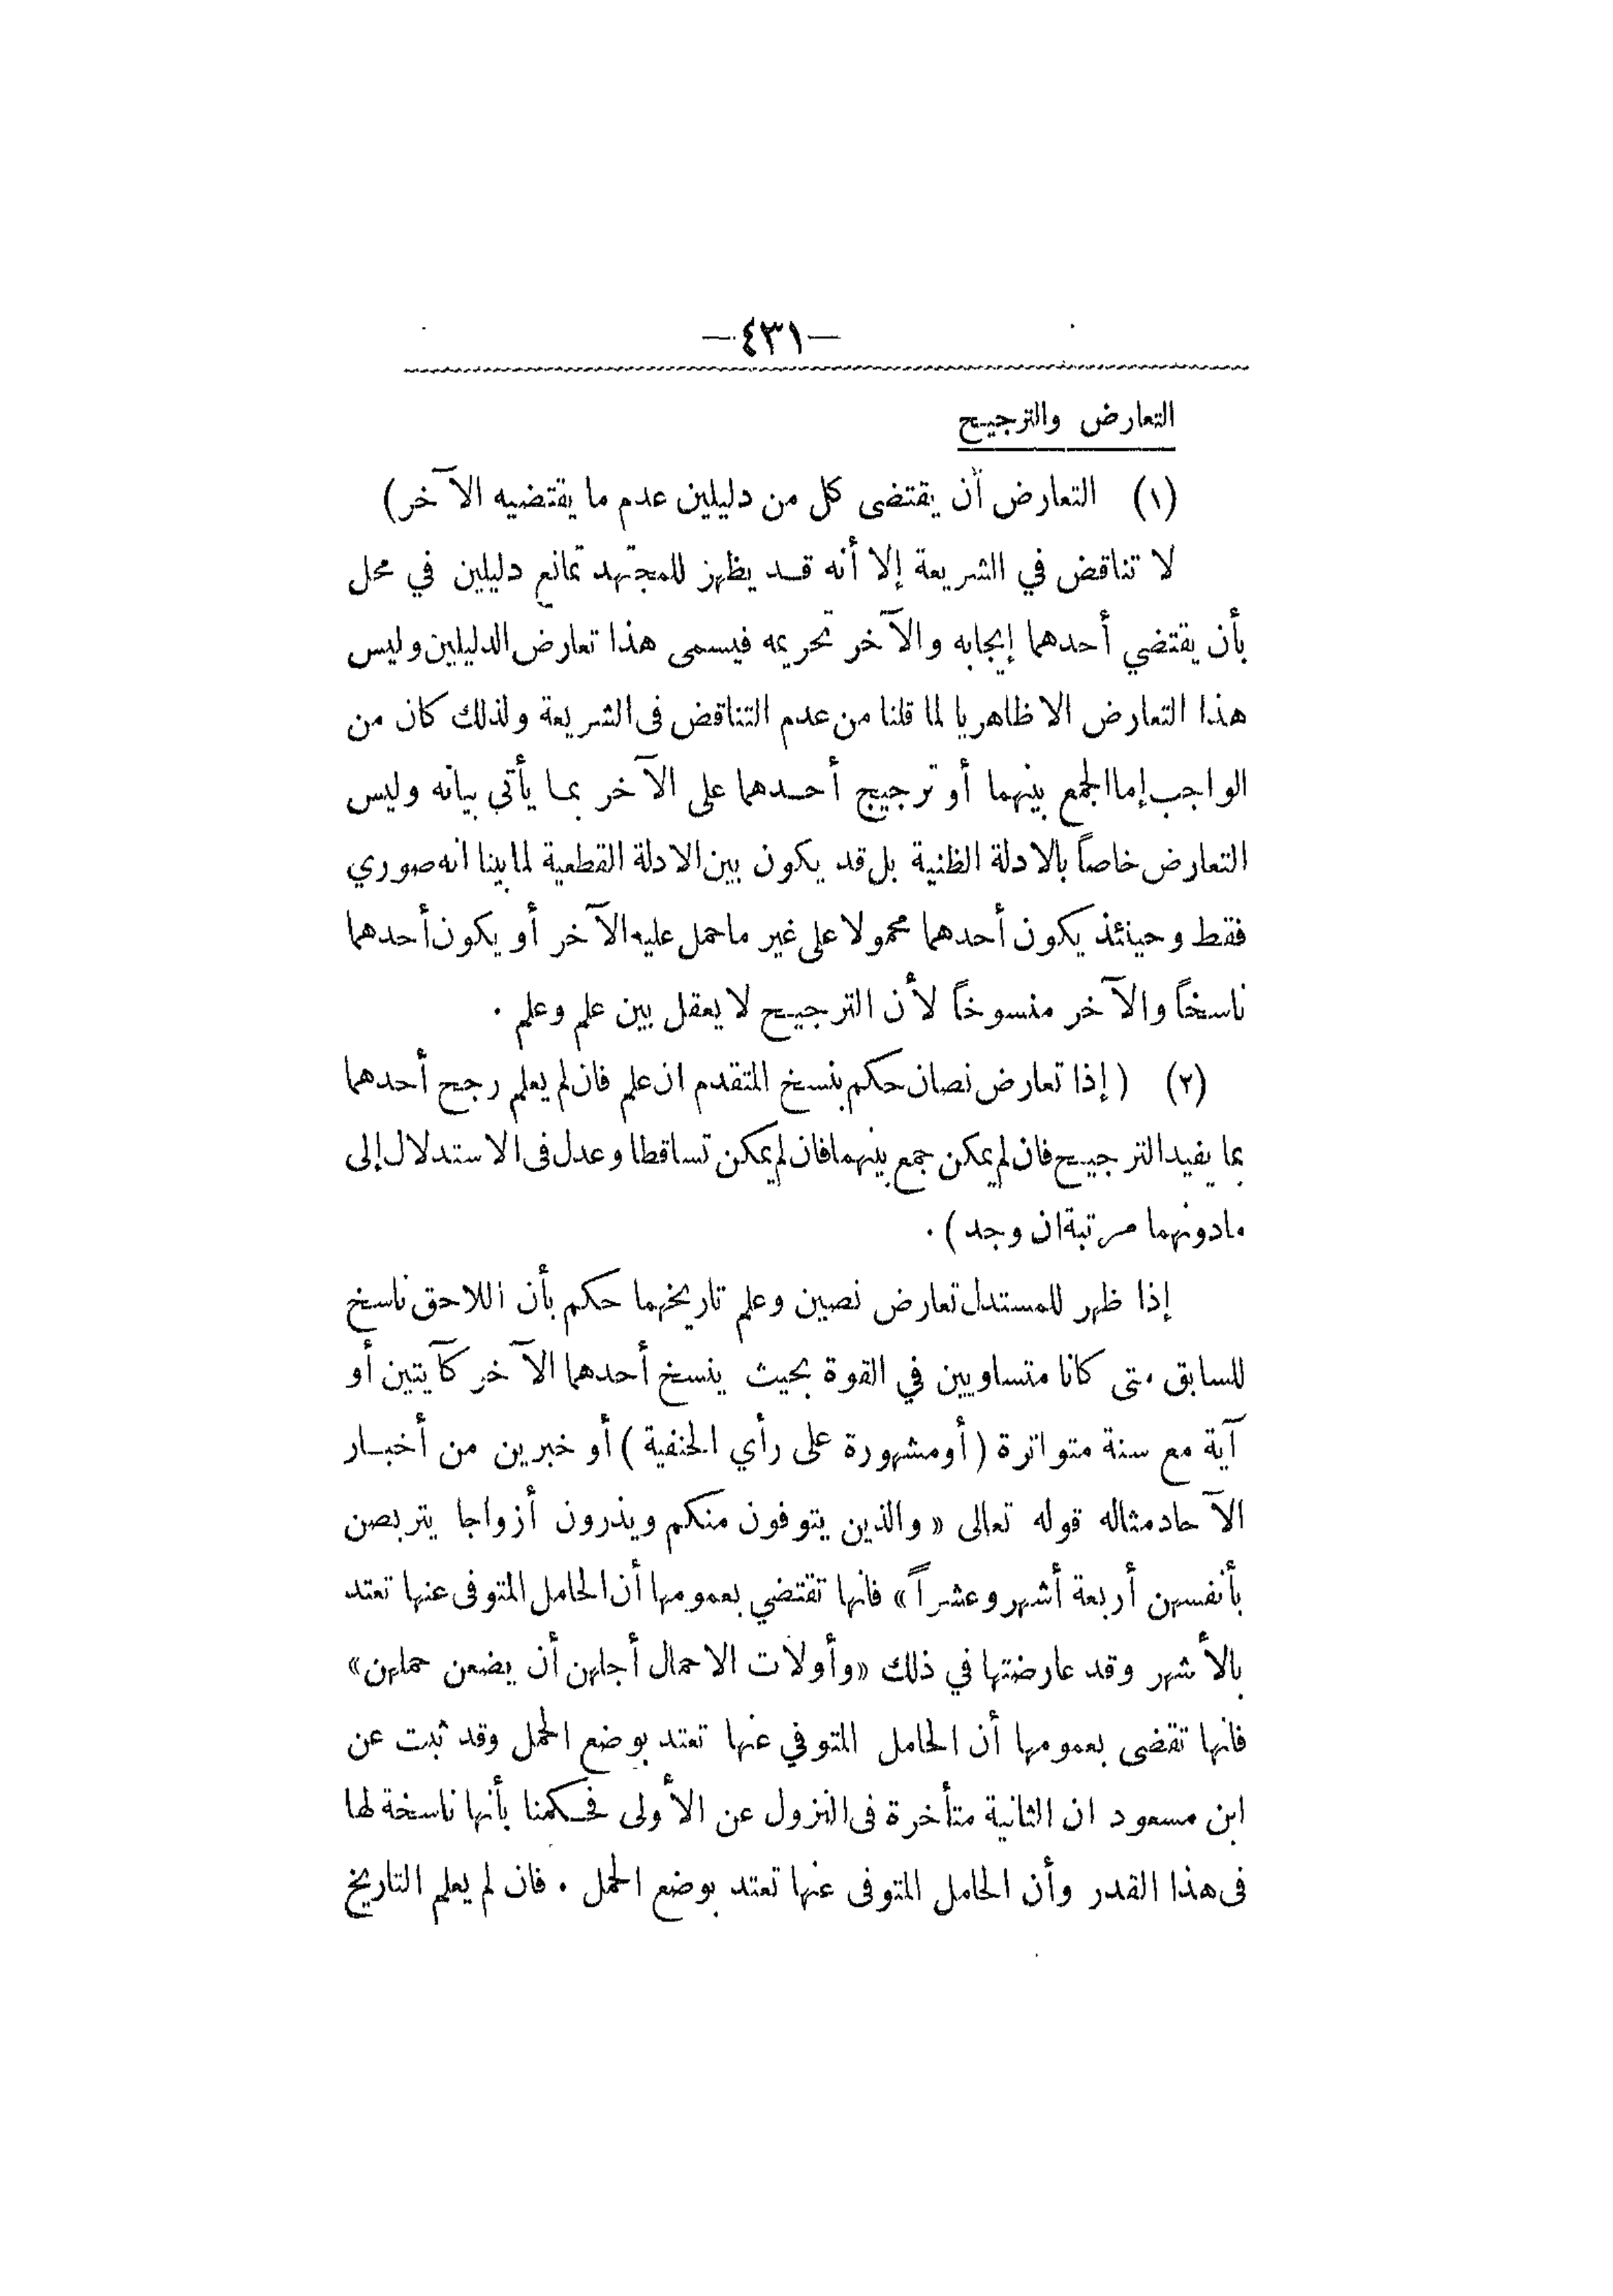 —٤٣١—
التعارض والترجيح
(١) التعارض أن يقتضى كل من دليلين عدم ما يقتضيه الآخر)
لا تناقض في الشريعة إلا أنه قد يظهر للمجتهد تمانع دليلين في محل
بأن يقتضي أحدهما إيجابه والآخر تحريمه فيسمى هذا تعارض الدليلين وليس
هذا التعارض الا ظاهريا لما قلنا من عدم التناقض فى الشريعة ولذلك كان من
الواجب إما الجمع بينهما أو ترجيح أحدهما على الآخر بما يأتي بيانه وليس
التعارض خاصاً بالادلة الظنية بل قد يكون بين الادلة القطعية لما بينا انه صوري
فقط وحينئذ يكون أحدهما محمولا على غير ما حمل عليه الآخر أو يكون أحدهما
ناسخاً والآخر منسوخاً لأن الترجيح لا يعقل بين علم وعلم .
(٢) (إذا تعارض نصان حكم بنسخ المتقدم ان علم فان لم يعلم رجح أحدهما
بما يفيد الترجيح فان لم يمكن جمع بينهما فان لم يمكن تساقطا وعدل فى الاستدلال إلى
مادونهما مرتبة ان وجد) .
إذا ظهر للمستدل تعارض نصين وعلم تاريخهما حكم بأن اللاحق ناسخ
للسابق متى كانا متساويين في القوة بحيث ينسخ أحدهما الآخر كآيتين أو
آية مع سنة متواترة (أو مشهورة على رأي الحنفية) أو خبرين من أخبار
الآحاد مثاله قوله تعالى «والذين يتوفون منكم ويذرون أزواجا يتربصن
بأنفسهن أربعة أشهر وعشراً» فانها تقتضي بعمومها أن الحامل المتوفى عنها تعتد
بالأشهر وقد عارضتها في ذلك «وأولات الاحمال أجلهن أن يضعن حملهن»
فانها تقضى بعمومها أن الحامل المتوفي عنها تعتد بوضع الحمل وقد ثبت عن
ابن مسعود ان الثانية متأخرة فى النزول عن الأولى فحكمنا بأنها ناسخة لها
فى هذا القدر وأن الحامل المتوفى عنها تعتد بوضع الحمل . فان لم يعلم التاريخ